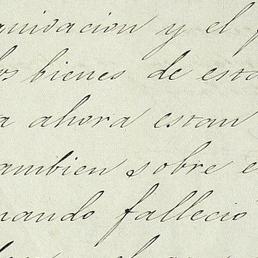 y el
los bienes de esta
a ahora estan
tambien sobre e
nando fallecio